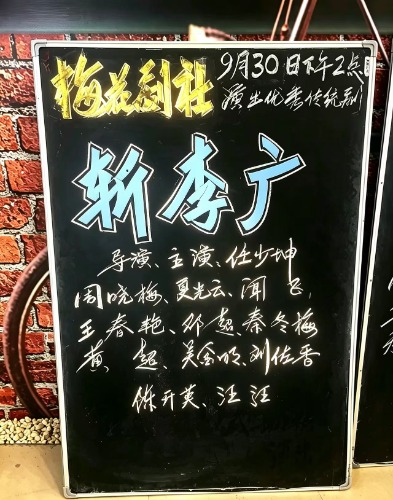 梅花剧社
9月30日下午2点
演出优秀传统剧
斩李广
导演、主演、任少坤
周晓梅、夏光云、闻飞、
王春艳、邓超、秦冬梅
黄超、吴金明、刘佐香
陈开英、汪汪